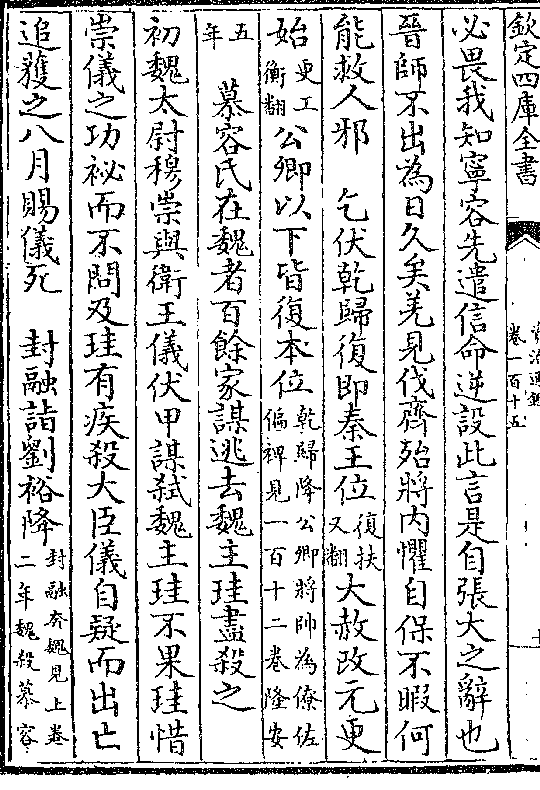 欽定四庫全書
資治通鑑
卷一百十五
必畏我知寧容先遣信命逆設此言是自張大之辭也
晉師不出為日久矣羌見伐齊殆將內懼自保不暇何
能救人邪　乞伏乾歸復即秦王位復扶又翻大赦改元更
始更工衡翻公卿以下皆復本位乾歸降公卿將帥為僚佐偏裨見一百十二卷隆安
五年　慕容氏在魏者百餘家謀逃去魏主珪盡殺之
初魏太尉穆崇與衛王儀伏甲謀弑魏主珪不果珪惜
崇儀之功祕而不問及珪有疾殺大臣儀自疑而出亡
追獲之八月賜儀死　封融詣劉裕降封融奔魏見上卷二年魏殺慕容